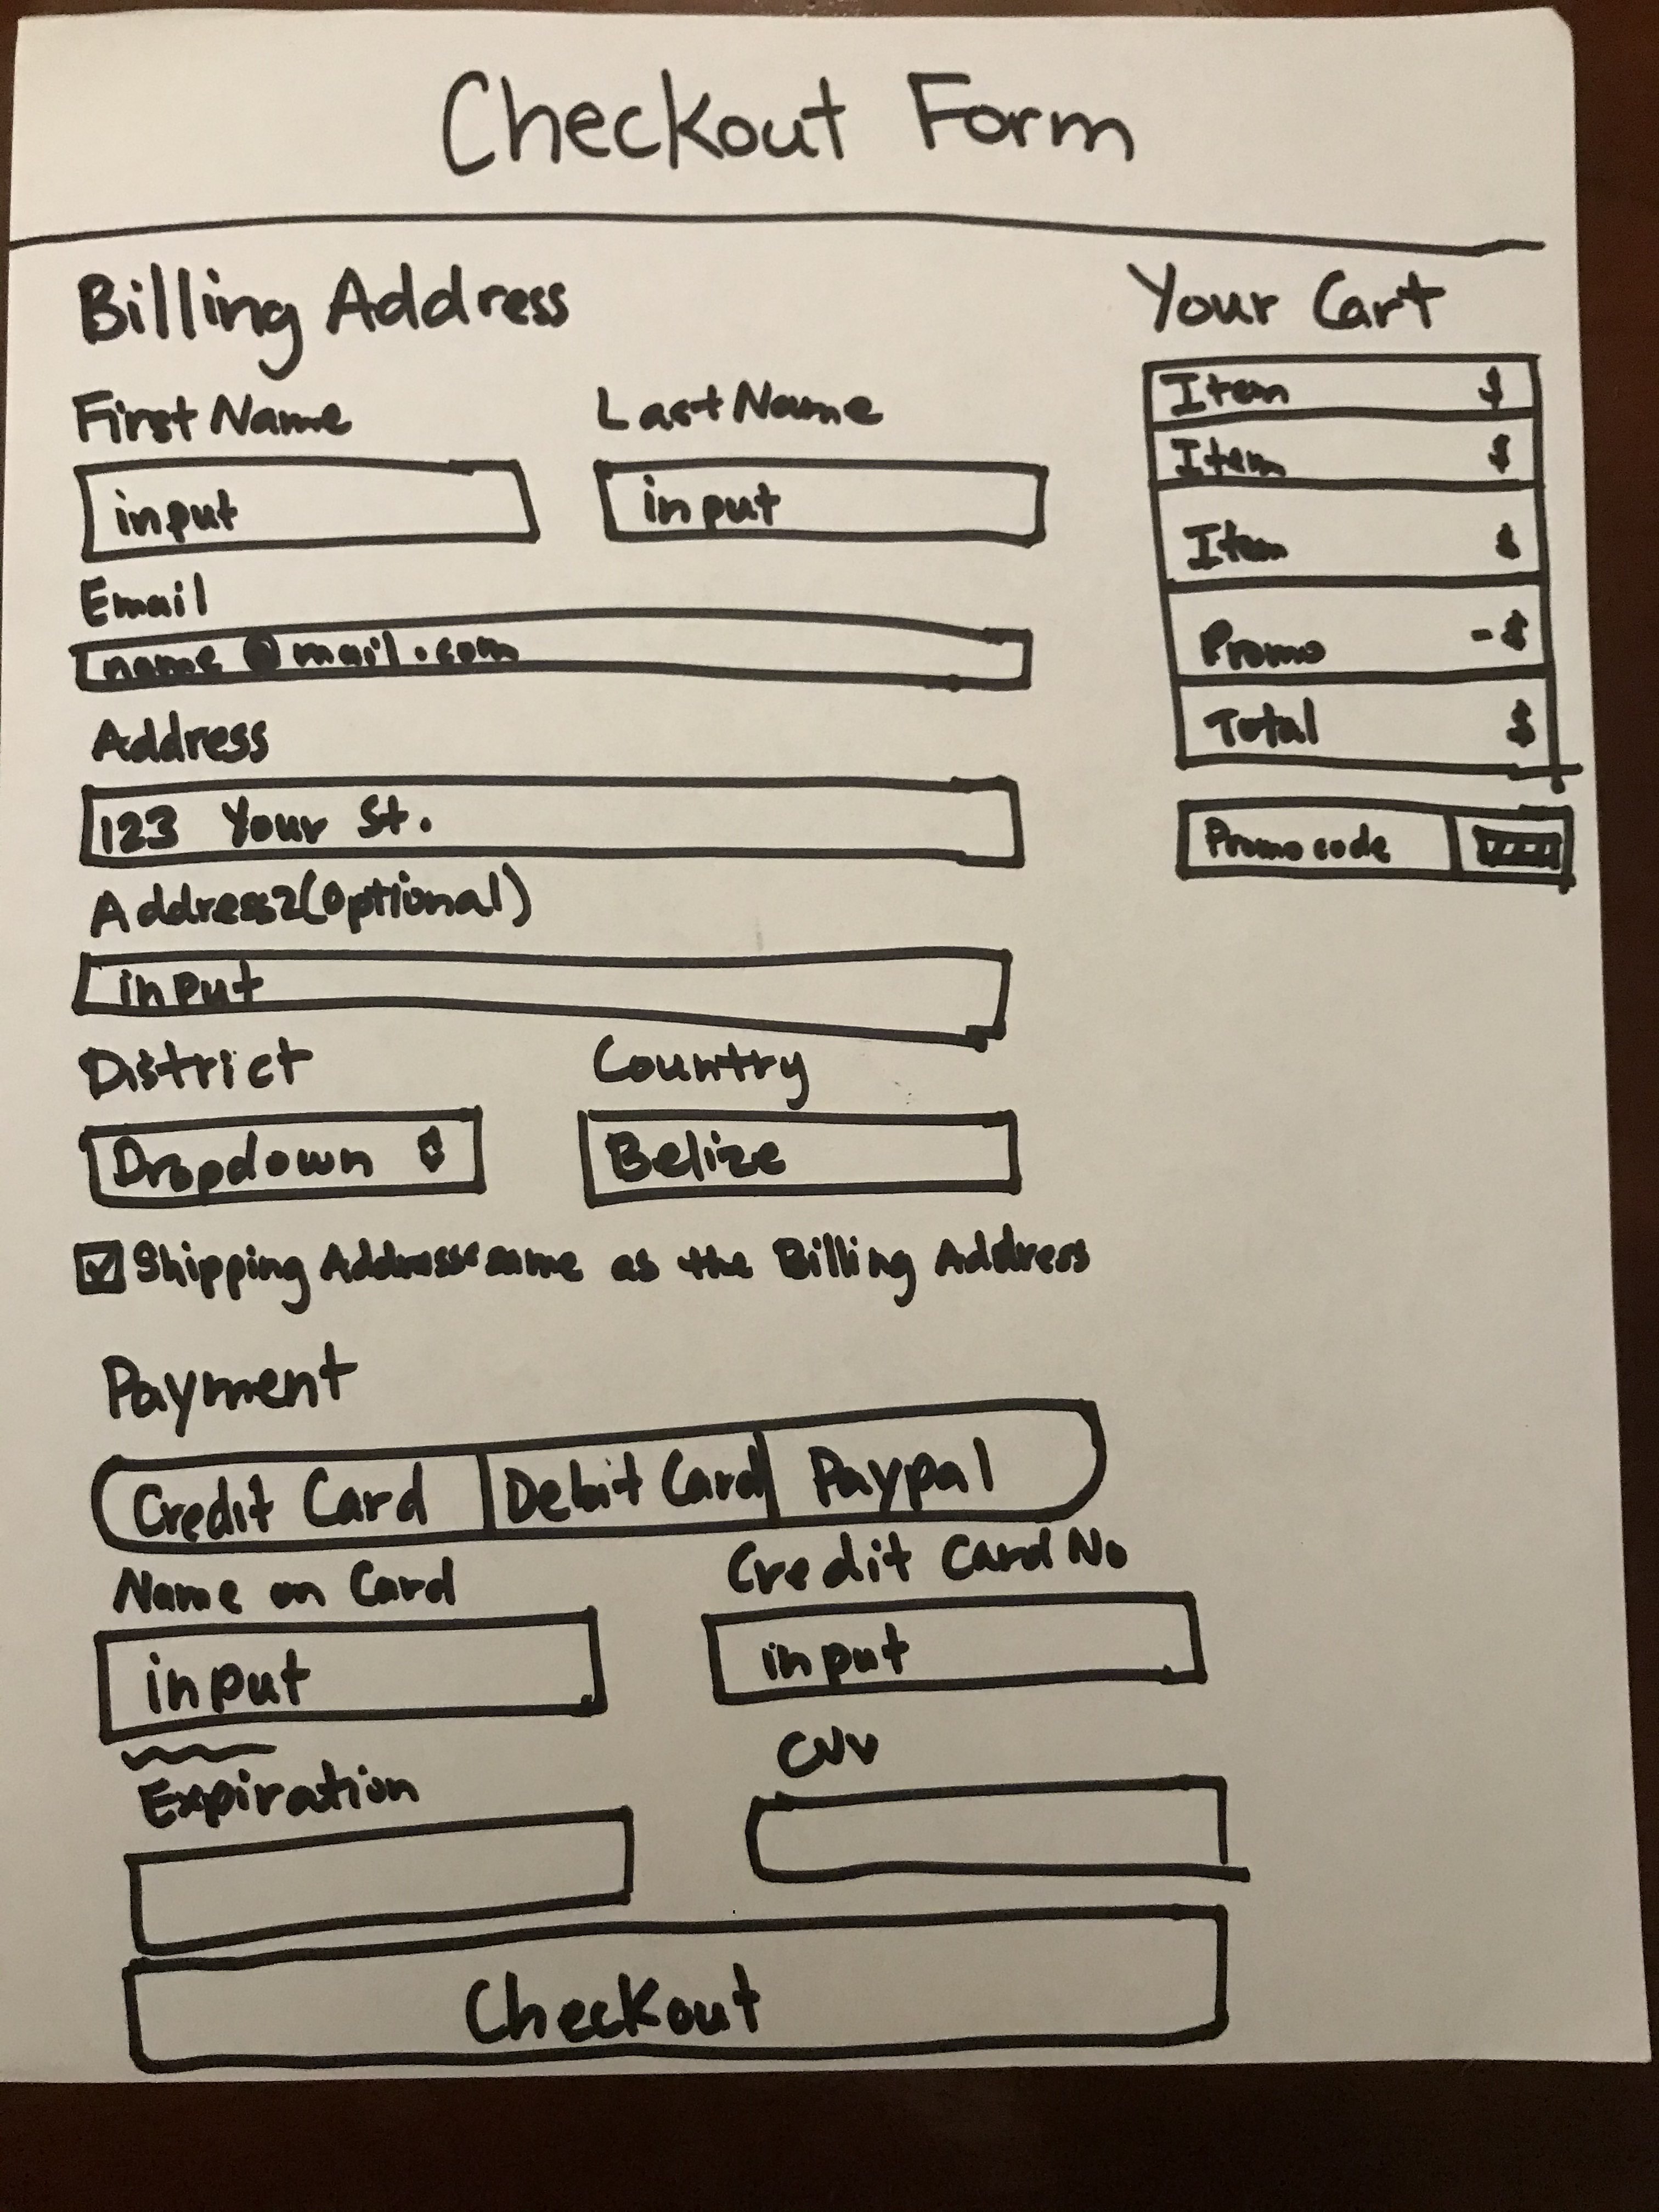 Checkout Form
Billing Address
First Name
Last Name
input
input
Email
name@mail.com
Address
123 Your St.
Address2(Optional)
input
District
Country
Dropdown
Belize
Shipping Address same as the Billing Address
Payment
Credit Card
Debit Card
Paypal
Name on Card
Credit Card No
input
input
Expiration
CVV
Checkout
Your Cart
Item $
Item $
Item $
Promo -$
Total $
Promo code